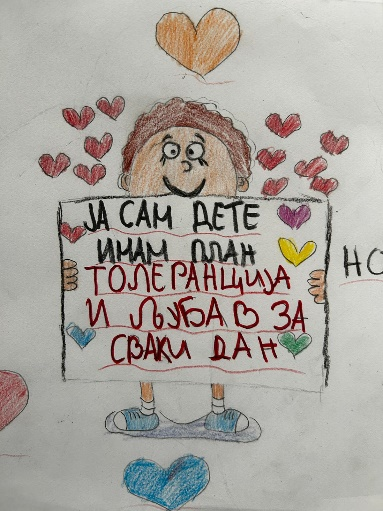 ЈА САМ ДЕТЕ
ИМАМ ПЛАН
ТОЛЕРАНЦИЈА
И ЉУБАВ ЗА
СВАКИ ДАН